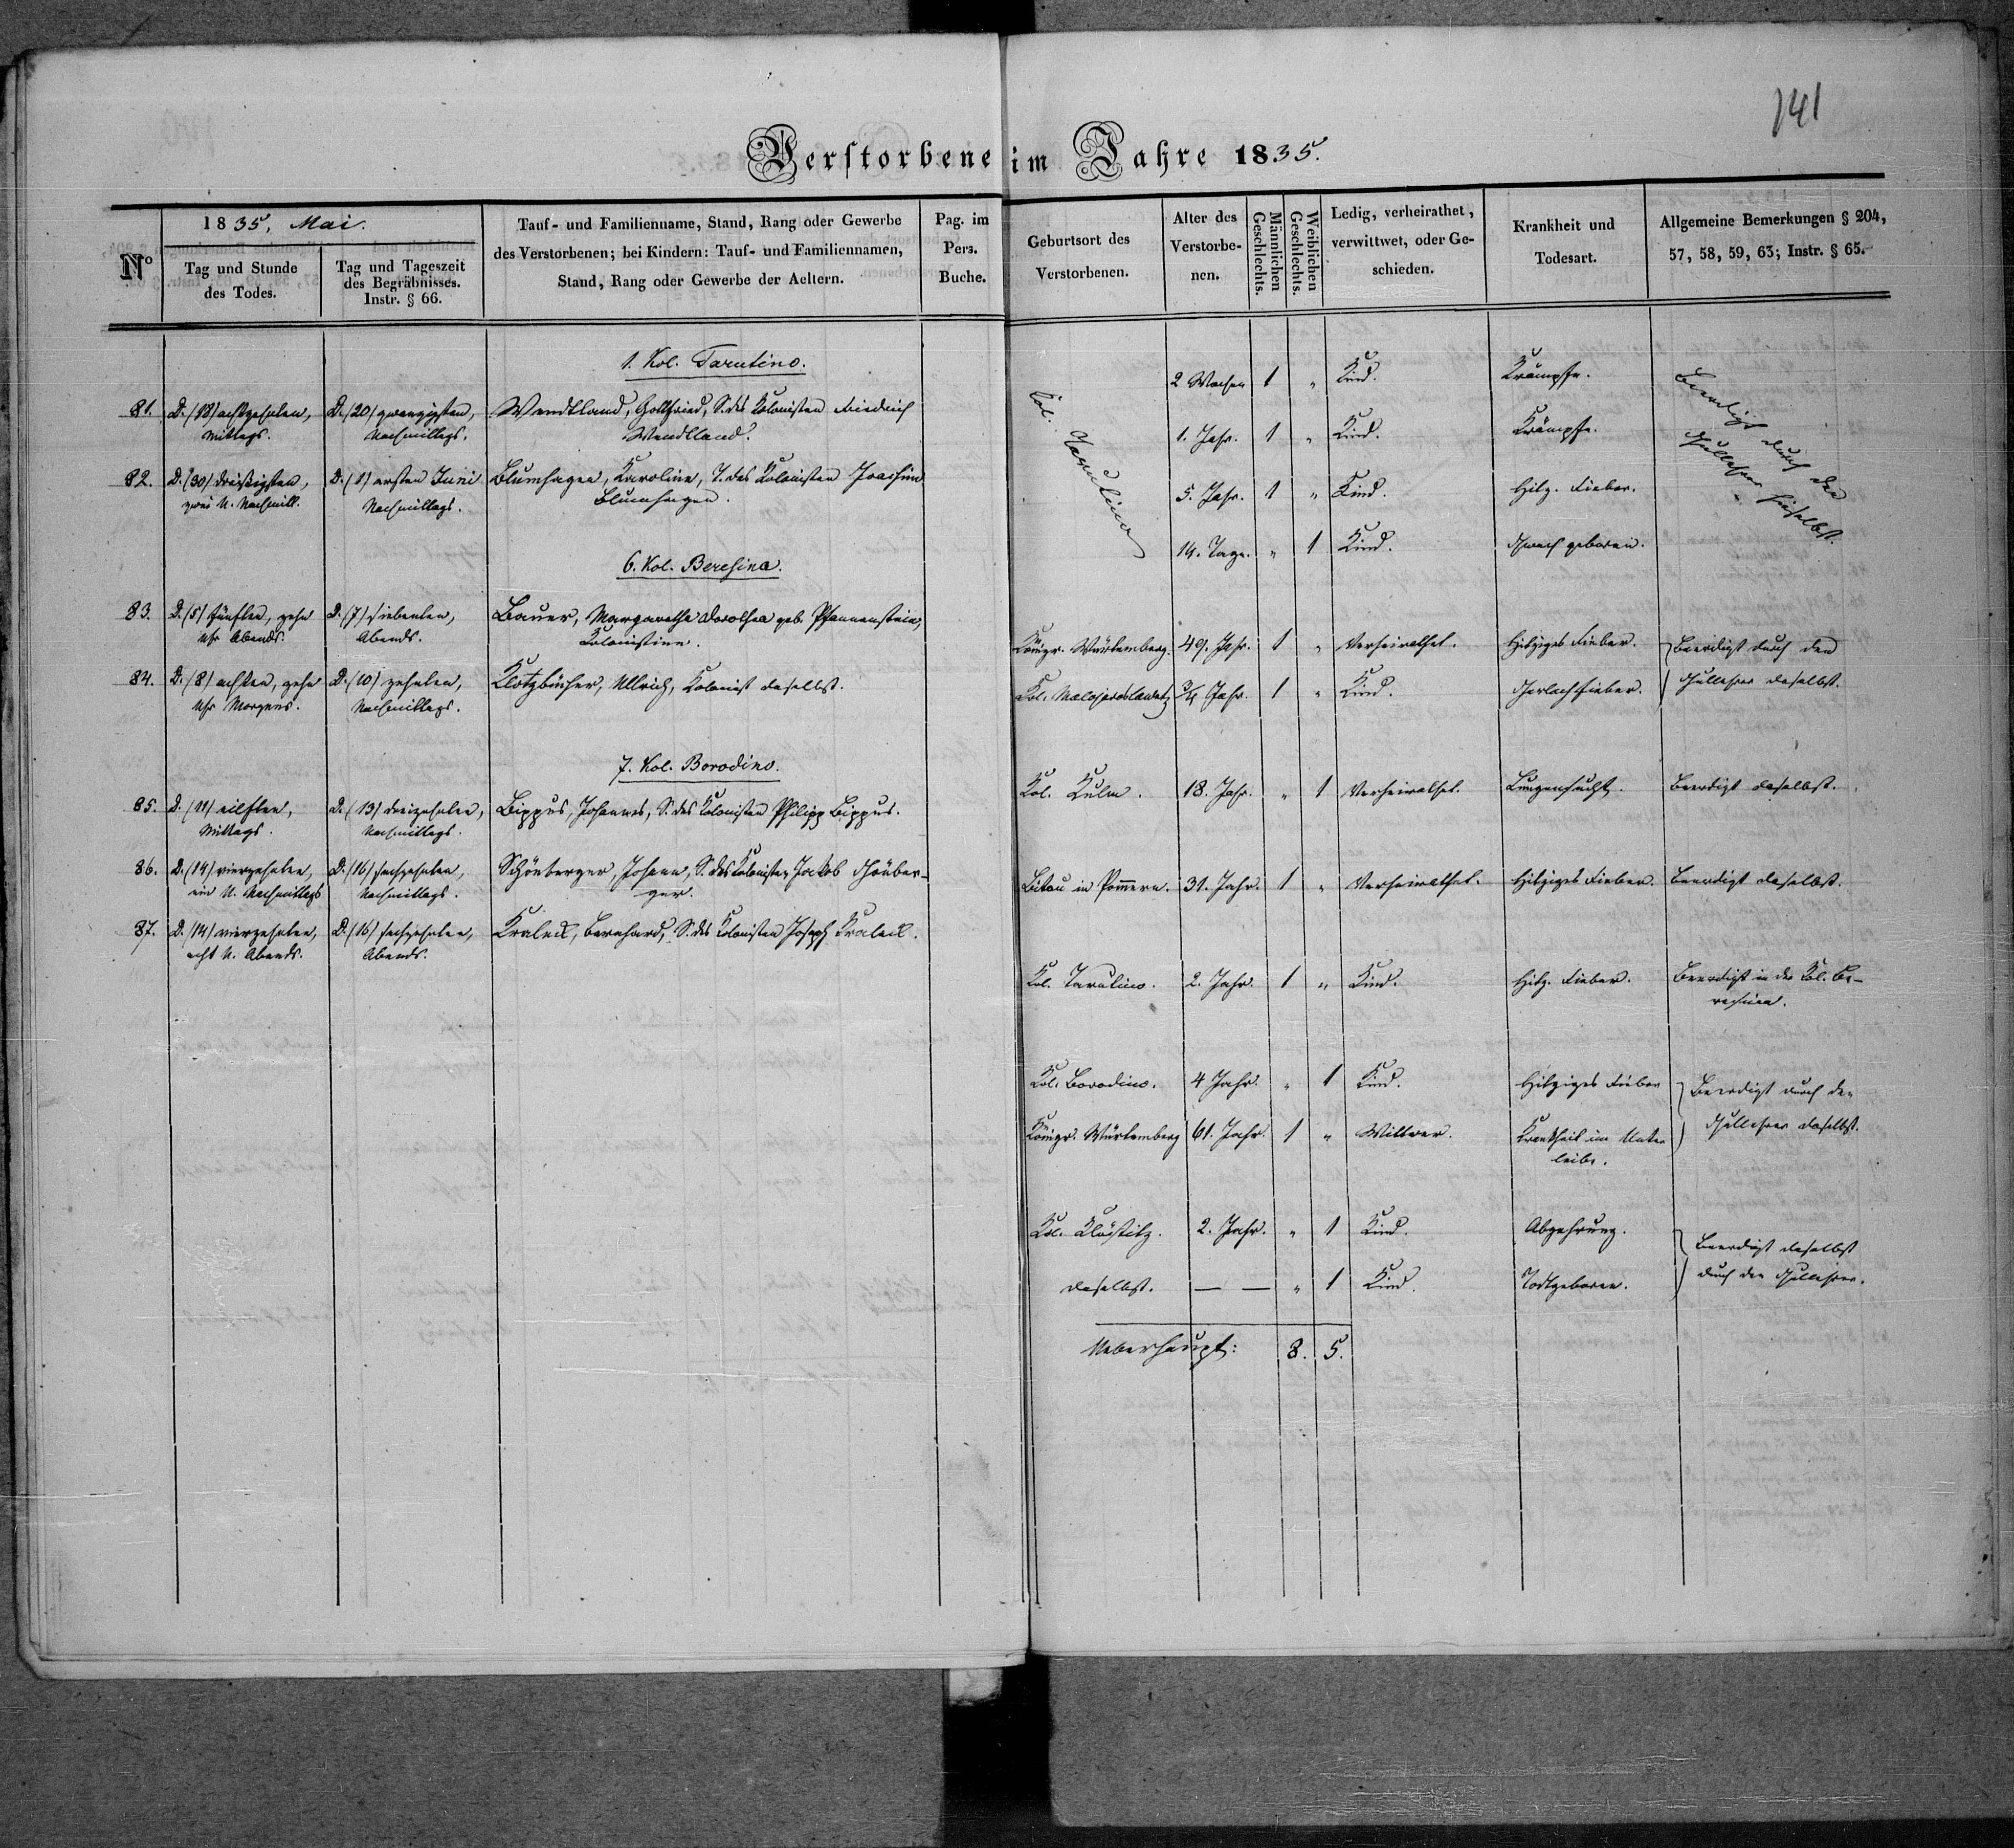 141
Verstorbene im Jahre 1835.
N°
1835, Mai.
Tag und Stunde
des Todes.
Tag und Tageszeit
des Begräbnisses.
Instr. § 66.
Tauf- und Familienname, Stand, Rang oder Gewerbe
des Verstorbenen; bei Kindern: Tauf- und Familiennamen,
Stand, Rang oder Gewerbe der Aeltern.
Pag. im
Pers.
Buche.
1. Kol. Tarutino.
81. D. (18) achtzehnten, D. (20) zwanzigsten, Wendtland, Gottfried, S. des Kolonisten Friedrich
Mittags. Nachmittags. Wendtland.
82. D. (30) dreißigsten, D. (1) ersten Juni Blumhagen, Karoline, T. des Kolonisten Joachim
zwei U. Nachmitt. Nachmittags. Blumhagen.
6. Kol. Beresina.
83. D. (5) fünften, zehn D. (7) siebenten, Bauer, Margaretha Dorothea geb. Pfannenstein,
Uhr Abends. Abends. Kolonistinn.
84. D. (8) achten, zehn D. (10) zehnten, Klotzbücher, Ullrich, Kolonist daselbst.
Uhr Morgens. Nachmittags.
7. Kol. Borodino.
85. D. (11) eilften, D. (13) dreizehnten, Bippus, Johannes, S. des Kolonisten Philipp Bippus.
Mittags. Nachmittags.
86. D. (14) vierzehnten, D. (16) sechzehnten, Schönberger, Johann, S. des Kolonisten Jakob Schönber-
ein U. Nachmittags Nachmittags. ger.
87. D. (14) vierzehnten, D. (16) sechzehnten, Bernhard, S. des Kolonisten Joseph
acht U. Abends. Abends.
Geburtsort des
Verstorbenen.
Alter des
Verstorbe-
nen.
Männlichen
Geschlechts.
Weiblichen
Geschlechts.
Ledig, verheirathet,
verwittwet, oder Ge-
schieden.
Krankheit und
Todesart.
Allgemeine Bemerkungen § 204,
57, 58, 59, 63; Instr. § 65.
Kol. Tarutino
2 Wochen 1 " Kind. Krämpfe.
1. Jahr. 1 " Kind. Krämpfe.
5. Jahr. 1 " Kind. Hitz. Fieber.
14. Tage. " 1 Kind. Schwach geboren.
Beerdigt durch den
Schullehrer hieselbst.
Königr. Würtemberg. 49. Jahr. 1 " Verheirathet. Hitziges Fieber. Beerdigt durch den
Kol. Malojaroslawetz ¾ Jahr. 1 " Kind. Scharlachfieber. Schullehrer daselbst.
Kol. Kulm. 18. Jahr. " 1 Verheirathet. Lungensucht. Beerdigt daselbst.
Bütau in Pommern. 31. Jahr. 1 " Verheirathet. Hitziges Fieber. Beerdigt daselbst.
Kol. Tarutino. 2. Jahr. 1 " Kind. Hitz. Fieber. Beerdigt in der Kol. Be-
resina.
Kol. Borodino. 4 Jahr. " 1 Kind. Hitziges Fieber Beerdigt durch den
Königr. Würtemberg 61. Jahr. 1 " Wittwer. Krankheit im Unter Schullehrer daselbst.
leibe.
Kol. Klöstitz. 2. Jahr. " 1 Kind. Abzehrung. Beerdigt daselbst
daselbst. — — " 1 Kind. Todtgeboren. durch den Schullehrer.
Ueberhaupt: 8. 5.